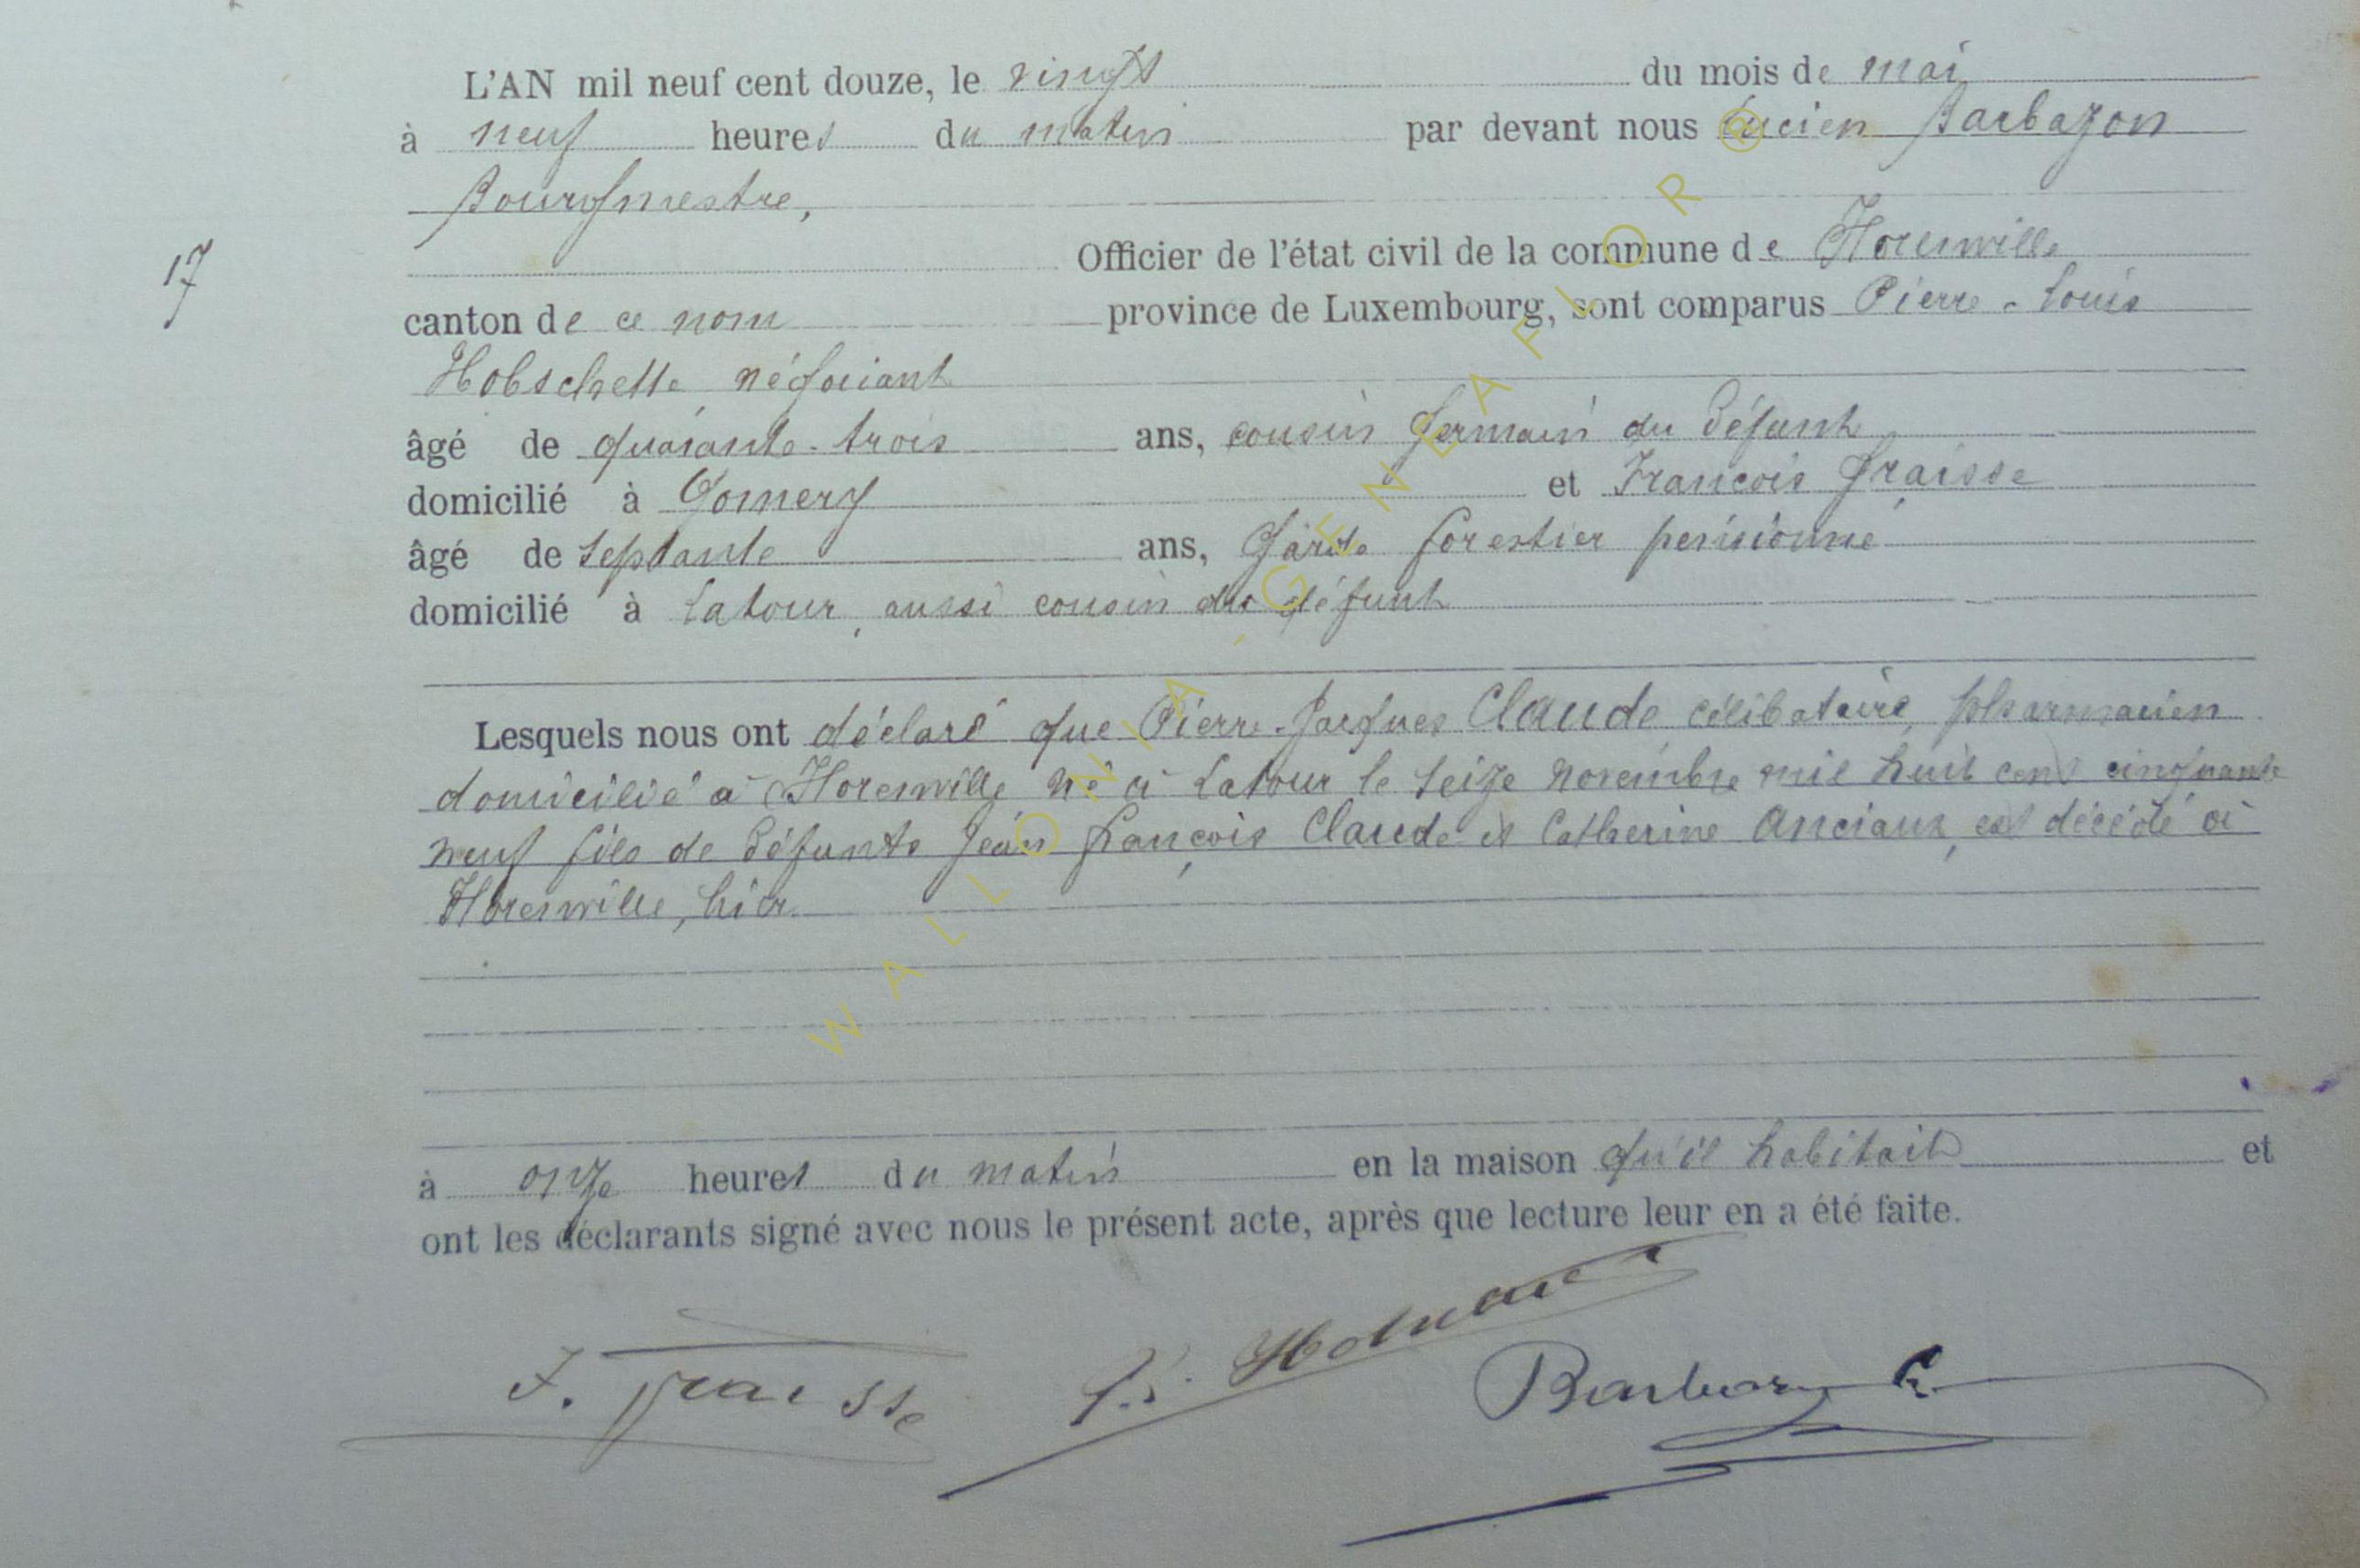 L'AN mil neuf cent douze, le vingt du mois de mai,
à neuf heures du matin par devant nous Lucien Barbazon
Bourgmestre,
17
Officier de l'état civil de la commune de Florenville
canton de ce nom province de Luxembourg, sont comparus Pierre-Louis
Hobschette, négociant
âgé de quarante-trois ans, cousin germain du défunt
domicilié à Gomery et François Graisse
âgé de septante ans, garde forestier pensionné
domicilié à Latour, aussi cousin du défunt
Lesquels nous ont déclaré que Pierre-Jacques Claude célibataire, pharmacien
domicilié à Florenville né à Latour le seize novembre mil huit cent cinquante
neuf fils de défunts Jean François Claude et Catherine Anciaux, est décédé à
Florenville, hier
à onze heures du matin en la maison qu'il habitait et
ont les déclarants signé avec nous le présent acte, après que lecture leur en a été faite.
F. Graisse
WALLONIA, GENEAFLOR®